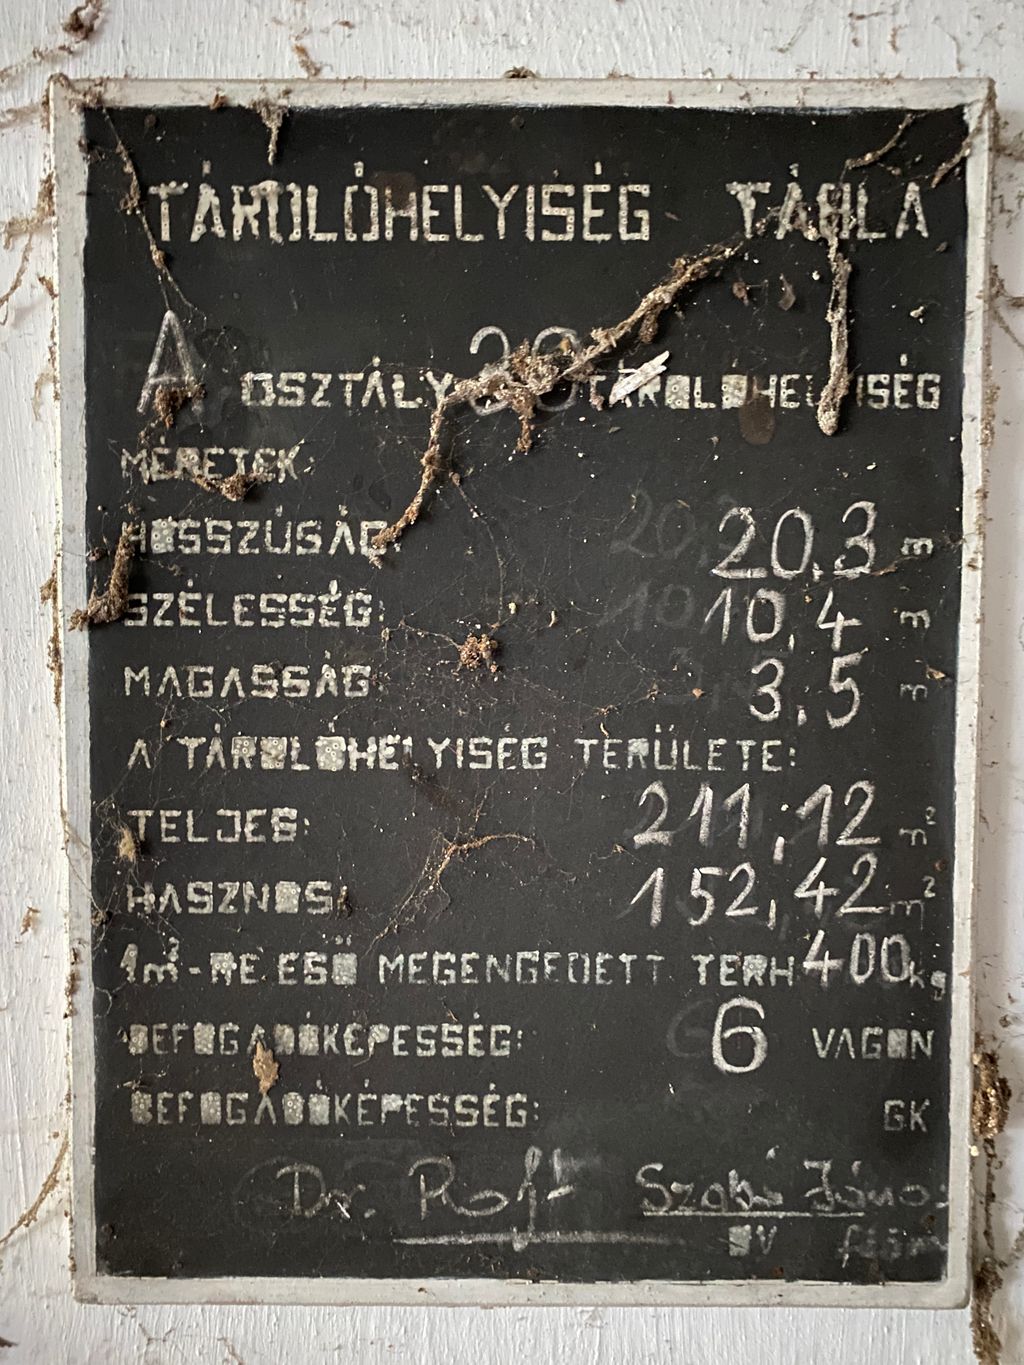 TÁROLÓHELYISÉG TÁBLA
A OSZTÁLY TÁROLÓHELYISÉG
MÉRETEK:
HOSSZÚSÁG: 20,3 m
SZÉLESSÉG: 10,4 m
MAGASSÁG: 3,5 m
A TÁROLÓHELYISÉG TERÜLETE:
TELJES: 211,12 m²
HASZNOS: 152,42 m²
1m²-RE ESŐ MEGENGEDETT TERH. 400 kg
BEFOGADÓKÉPESSÉG: 6 VAGON
BEFOGADÓKÉPESSÉG: GK
Dr. Szabó János